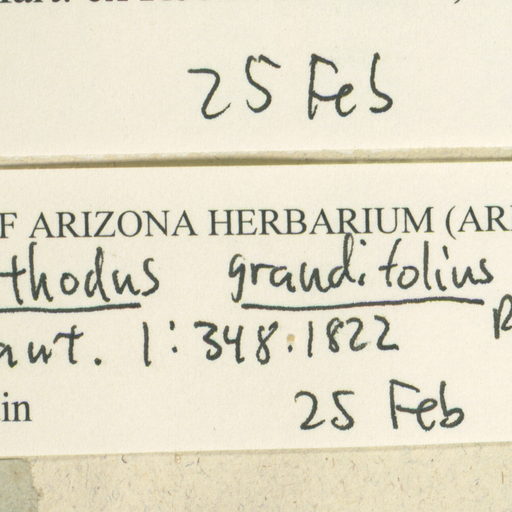 25 Feb
F ARIZONA HERBARIUM (ARI
thodus grandifolius
aut. 1:348.1822 R
in 25 Feb